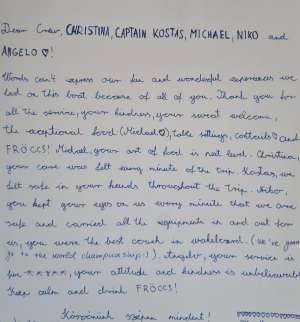 Dear Crew, CHRISTINA, CAPTAIN KOSTAS, MICHAEL, NIKO and
ANGELO ♡!
Words can't express our fun and wonderful experiences we
had on this boat, because of all of you. Thank you for
all the service, your kindness, your sweet welcome,
the exceptional food (Michael♡), table settings, cocktails♡ and
FRÖCCS! Michael, your art of food is next level. Christina,
your care was felt every minute of the trip. Kostas, we
felt safe in your hands throughout the trip. Nikos,
you kept your eyes on us every minute that we are
safe and carried all the equipments in and out for
us, you were the best coach in wakeboard. (We've gonna
go to the world championship :) ). Angelo, your service is
fun ★★★★★, your attitude and kindness is unbelievable.
Keep calm and drink FRÖCCS!
Köszönjük szépen mindent!